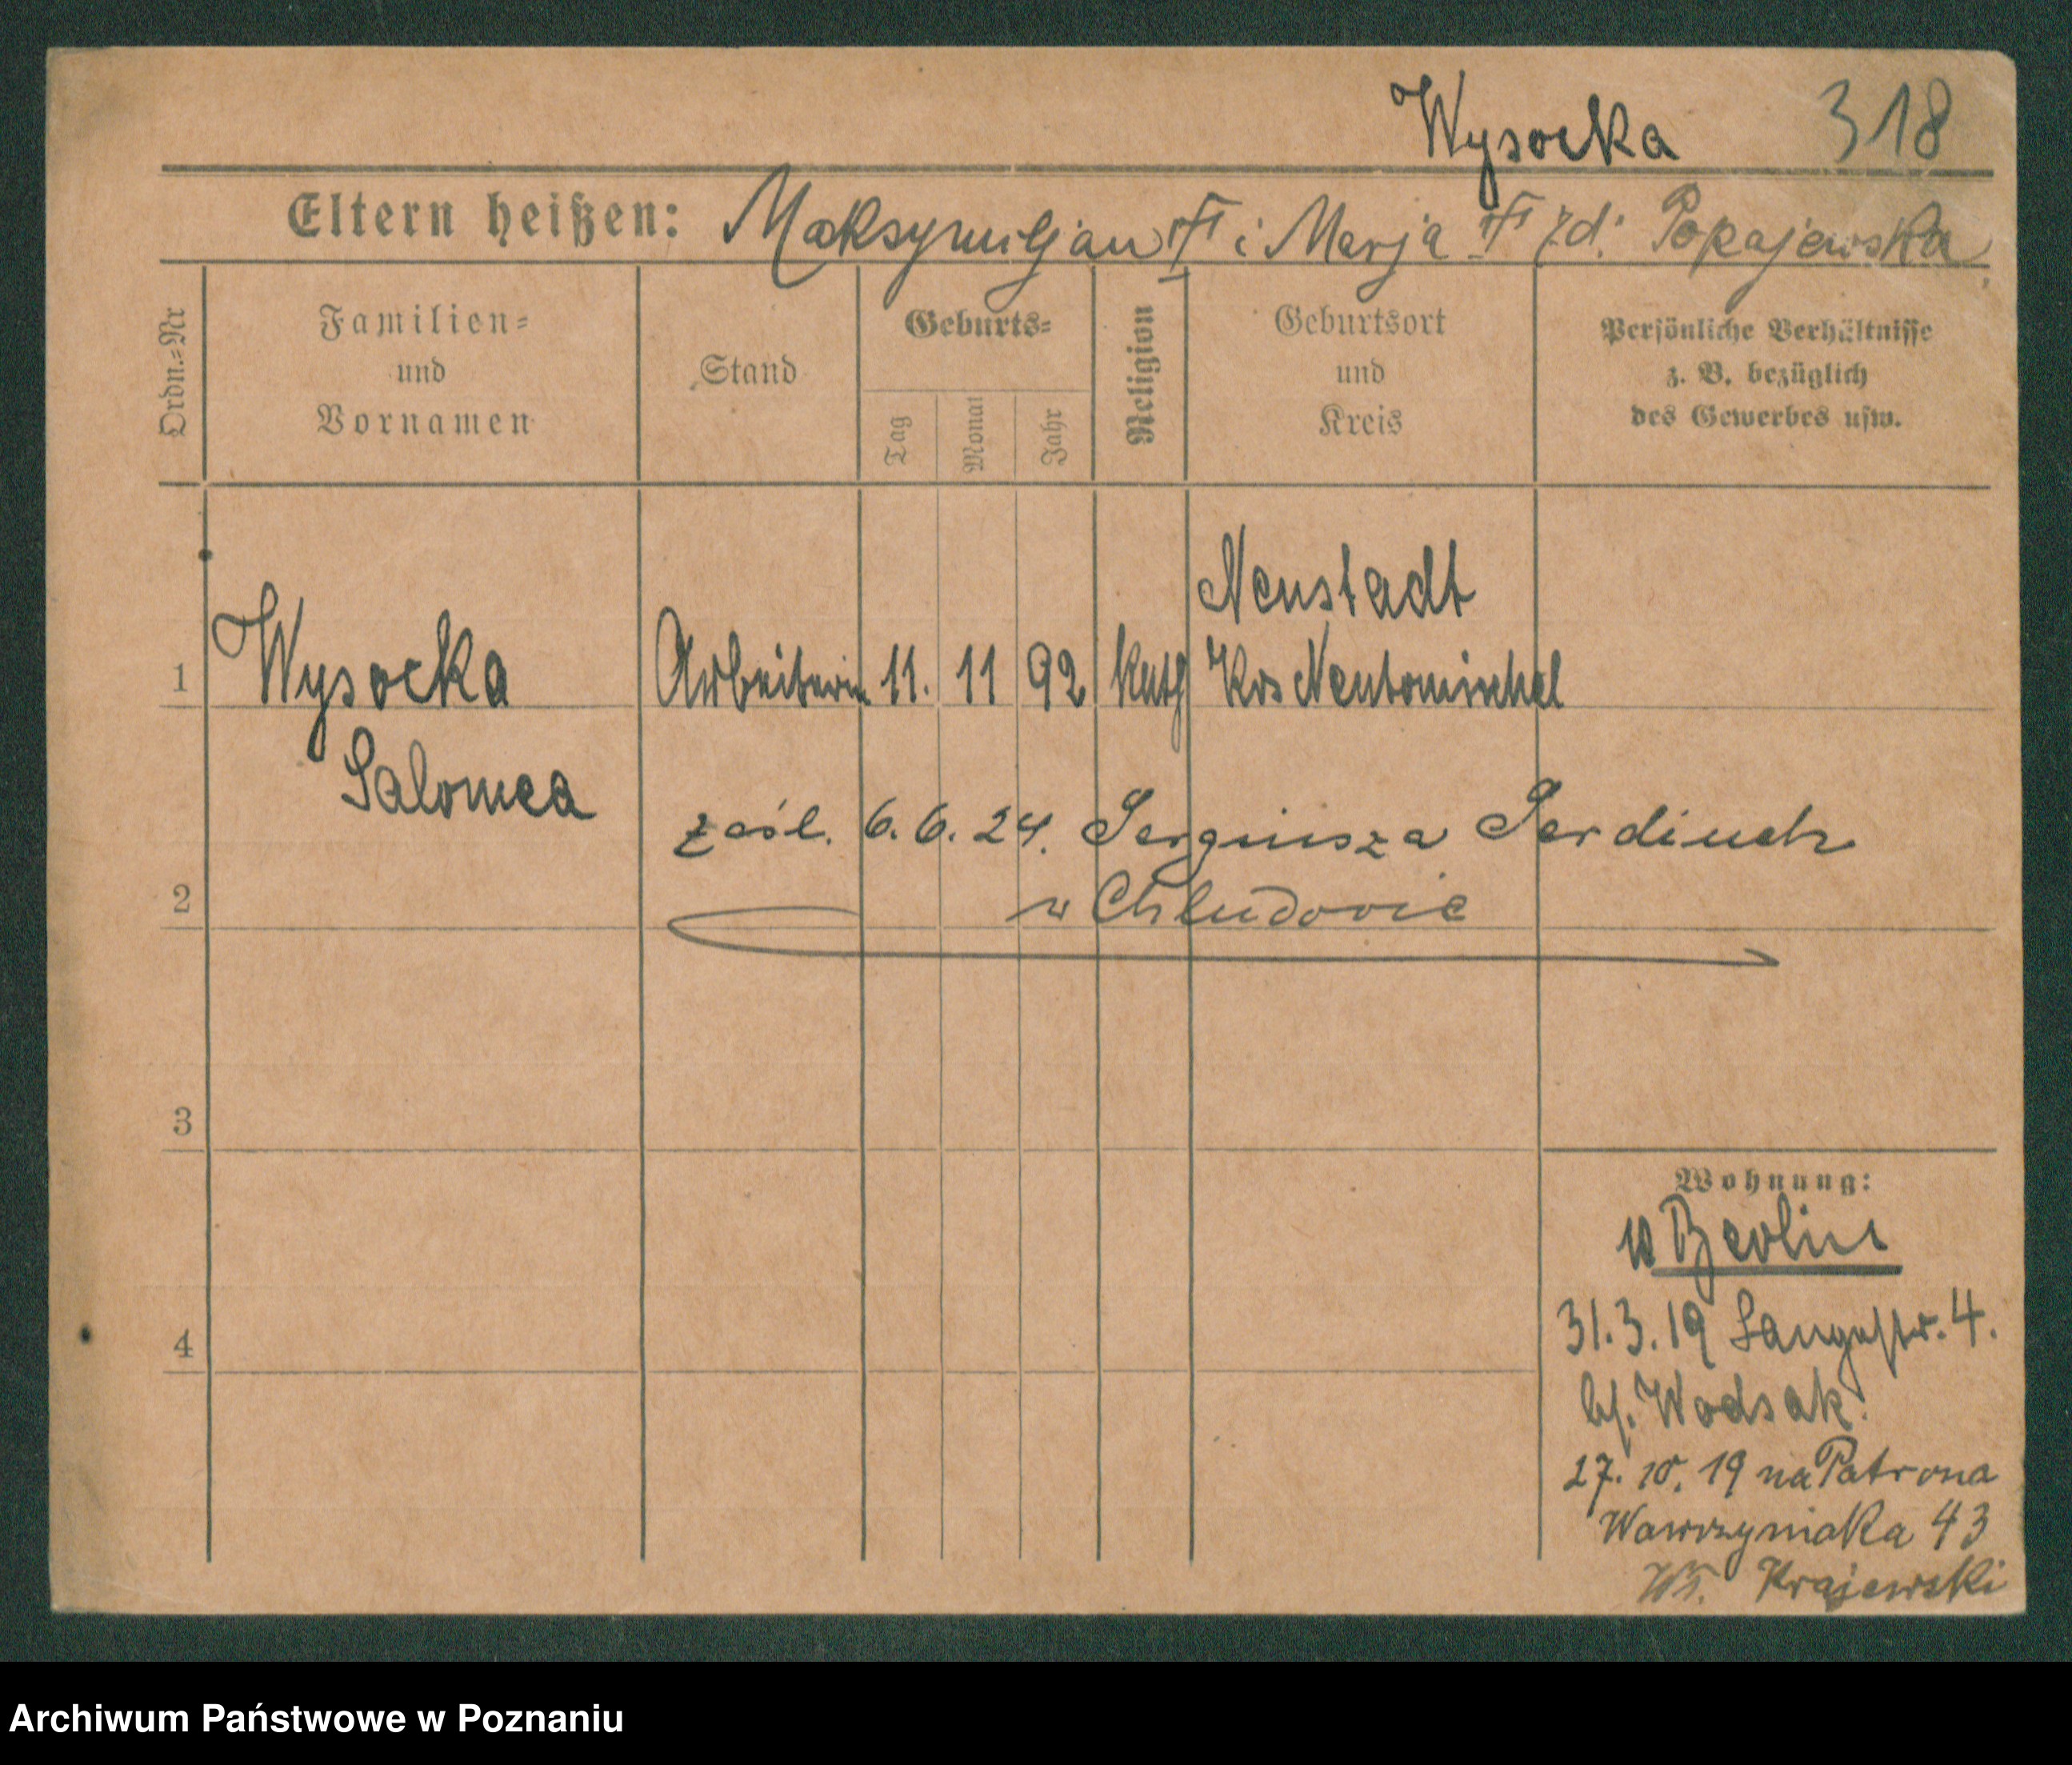 Wysocka 318
Eltern heißen: Maksymiljan i Marja zd. Pokajewska
Ordn.=Nr
Familien=
und
Vornamen
Stand
Geburts=
Tag
Monat
Jahr
Religion
Geburtsort
und
Kreis
Persönliche Verhältnisse
z. B. bezüglich
des Gewerbes usw.
Neustadt
1 Wysocka Arbeiterin 11. 11 92 kath Krs Neutomischel
Salomea
zaśl. 6. 6. 24. Sergiusza Serdiuch
2 w Chludowie
3
4
Wohnung:
Berlin
31.3.19 Langestr. 4.
bs. Wodsak
27. 10. 19 na Patrona
Wawrzyniaka 43
Krajewski
Archiwum Państwowe w Poznaniu